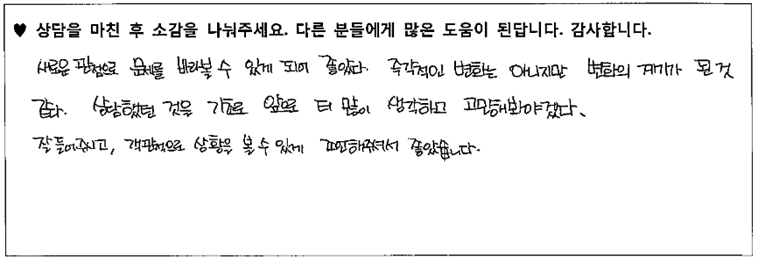 ♥ 상담을 마친 후 소감을 나눠주세요. 다른 분들에게 많은 도움이 된답니다. 감사합니다.
새로운 관점으로 문제를 바라볼 수 있게 되어 좋았다. 즉각적인 변화는 아니지만 변화의 계기가 된 것
같다. 상담했던 것을 기초로 앞으로 더 많이 생각하고 고민해봐야겠다.
잘 들어주시고, 객관적으로 상황을 볼 수 있게 고민해주셔서 좋았습니다.